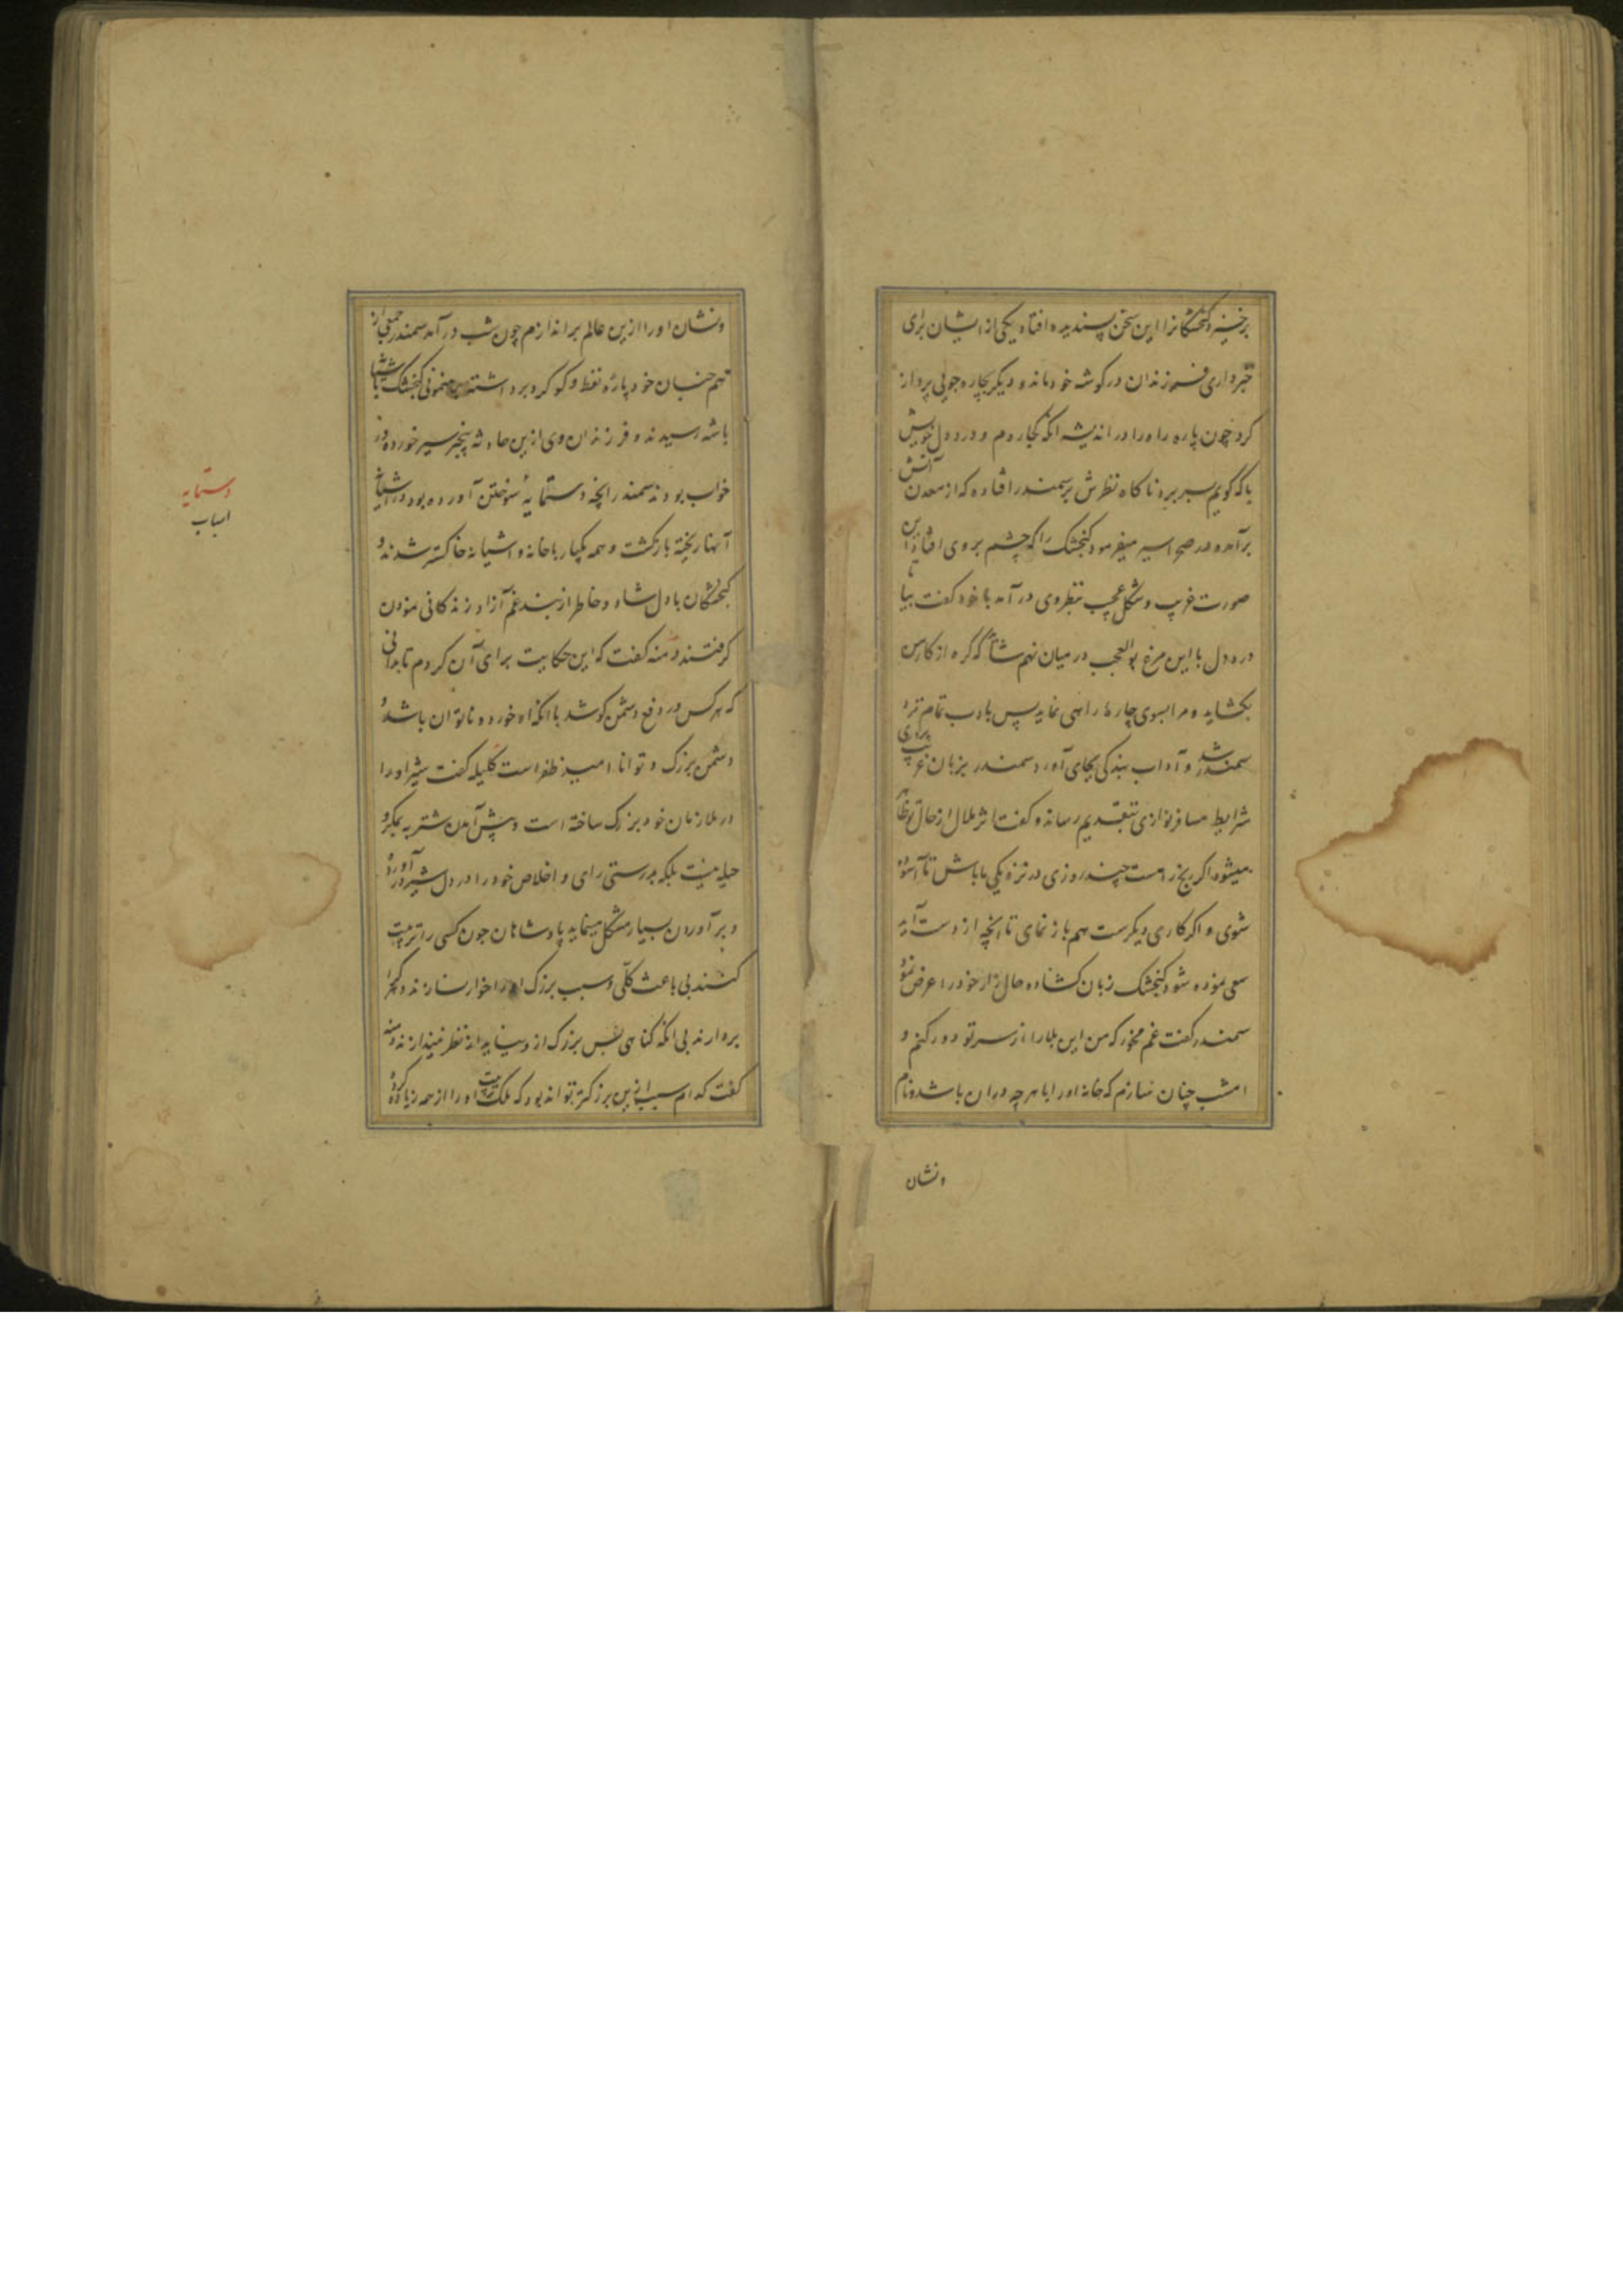 برخیزد گنجشکانرا این سخن پسندیده افتاد یکی از ایشان برای
خبرداری فرزندان در کوشه خود ماند و دیگر بچاره جویی پرواز
کرد چون پاره راه را در اندیشه آنکه کجا روم و درد دل خویش
با که گویم بسر برد ناکاه نظرش بر سمندر افتاد که از معدن آتش
برآمده در صحرا سیر میفرمود گنجشک را که چشم بر وی افتاد از این
صورت غریب و شکل عجیب بنظر وی در آمد با خود گفت بیا تا
درد دل با این مرغ بوالعجب در میان نهم شاید که گره از کار من
بکشاید و مرا بسوی چاره راهی نماید پس با ادب تمام نزد
سمندر شد و آداب بندگی بجای آورد سمندر بزبان غریب
شرایط مسافرنوازی بتقدیم رسانده گفت اثر ملال از حال تو ظاهر
میشود اگر رنج زهست چند روزی در نزدیکی ما باش تا آسوده
شوی و اگر کاری دیگرست هم باز نمای تا آنچه از دست آید
سعی نموده شود گنجشک زبان گشاده حال زار خود را عرض نمود
سمندر گفت غم مخور که من این بلا را از سر تو دور کنم و
امشب چنان سازم که خانه او را با هرچه در آن باشد و نام
ونشان
ونشان او را ازین عالم براندازم چون شب در آمد سمندر جمعی از
هم جنسان خود پاره نفط و گوگرد برداشته برهنمونی گنجشک بآشیان
باشه رسیدند و فرزندان وی ازین حادثه بیخبر سیر خورده در
خواب بودند سمندر آنچه دستمایه سوختن آورده بود در آشیانه
آنها ریخته بازگشت و همه یکبار با خانه و آشیانه خاکستر شدند و
گنجشکان با دل شاد و خاطر از بند غم آزاد زندگانی نمودن
گرفتند دمنه گفت که این حکایت برای آن کردم تا بدانی
که هر کس در دفع دشمن کوشد با آنکه او خورد و ناتوان باشد و
دشمن بزرگ و توانا امید ظفر است کلیله گفت شیر او را
در ملازمان خود بزرگ ساخته است و پیش آمدن شتربه بمکر و
حیله نیست بلکه بدرستی رای و اخلاص خود را در دل شیر در آورده
و بر آوردن بسیار مشکل مینماید پادشاهان چون کسی را تربیت
کنند بی باعث کلی و سبب بزرگ او را خوار نسازند و کمتر
بردارند بی آنکه گناهی بس بزرگ از وی نیاید از نظر نیندازند دمنه
گفت کدام سبب ازین بزرگتر تواند بود که ملک تربیت او را از همه زیاده کرده
دستمایه
اسباب